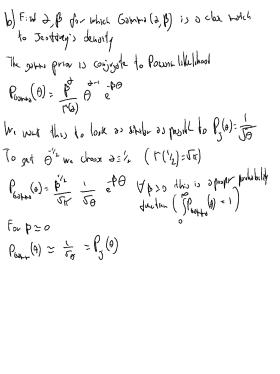 b) Find α, β for which Gamma(α,β) is a close match
to Jeffrey's density
The gamma prior is conjugate to Poisson likelihood
P_Gamma(θ) = β^α / Γ(α) θ^(α-1) e^(-βθ)
We want this to look as similar as possible to P_J(θ) = 1/√θ
To get θ^(-1/2) we choose α = 1/2 (Γ(1/2) = √π)
P_Gamma(θ) = β^(1/2) / √π 1/√θ e^(-βθ) ∀β>0 this is a proper probability
function (∫_0^∞ P_Gamma(θ) = 1)
For β ≃ 0
P_Gamma(θ) ≃ 1/√θ = P_J(θ)